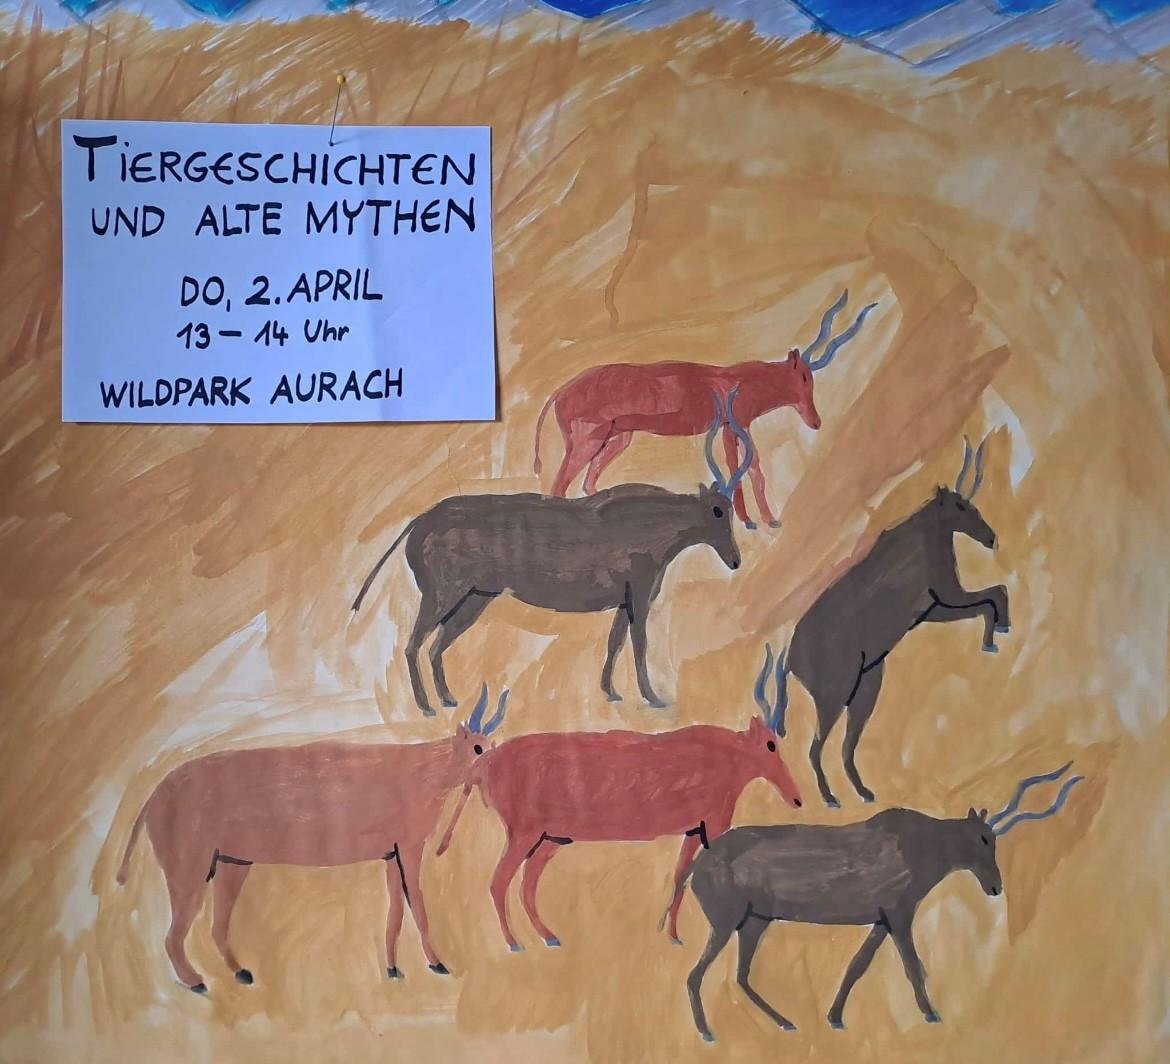 TIERGESCHICHTEN
UND ALTE MYTHEN
DO, 2. APRIL
13 – 14 Uhr
WILDPARK AURACH